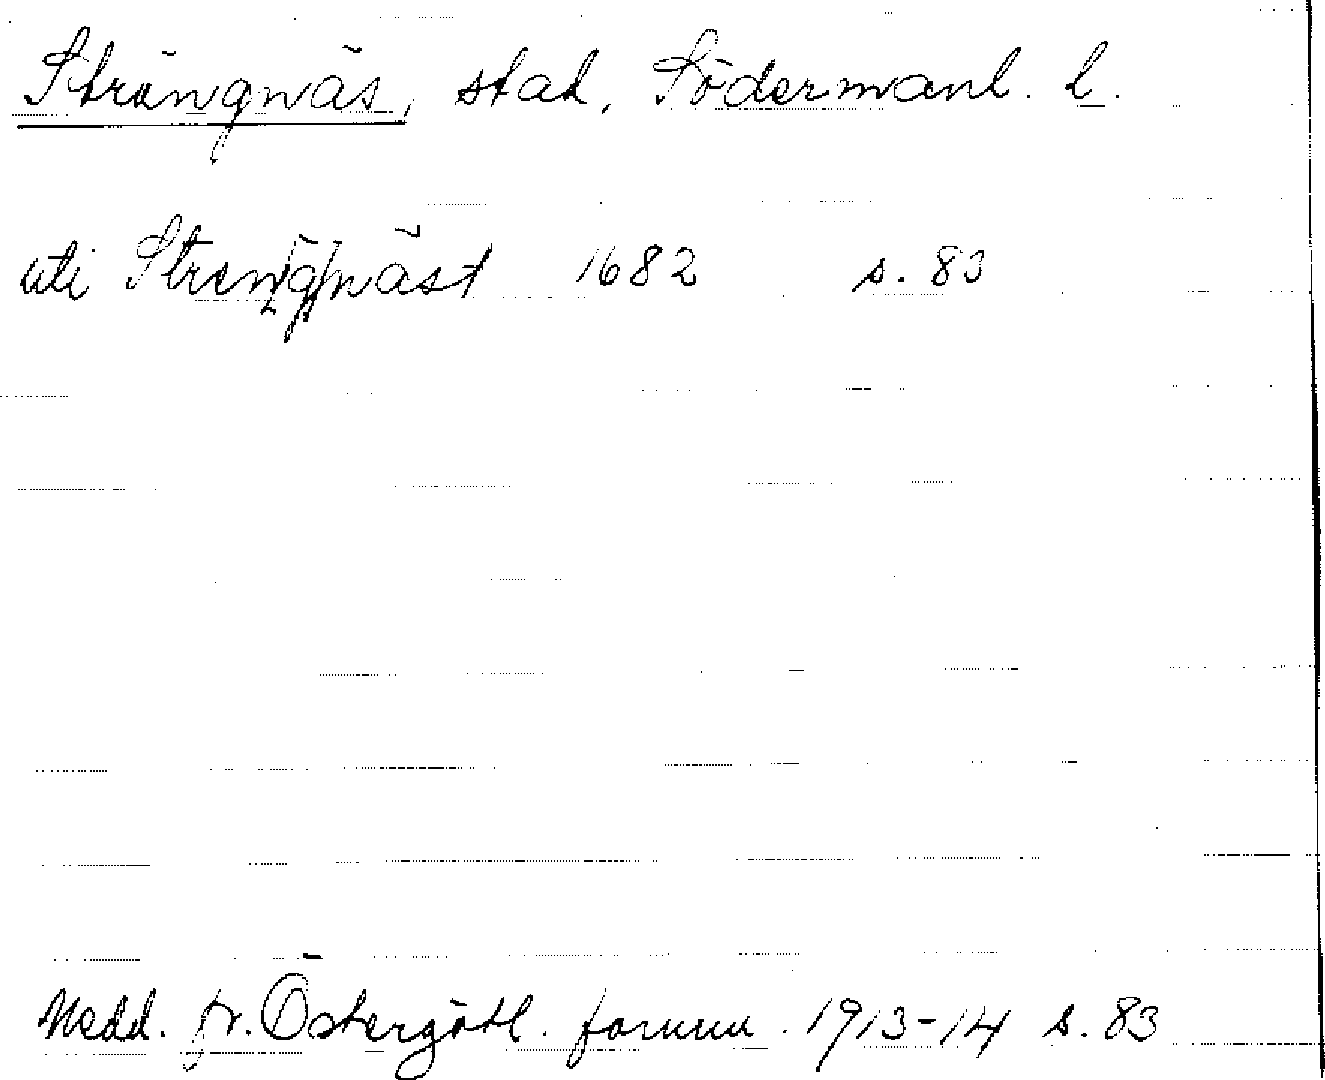 Strängnäs, stad, Södermanl. l.
uti Stren[g]näst 1682 s. 83
Medd. fr. Östergötl. fornm. 1913-14 s. 83